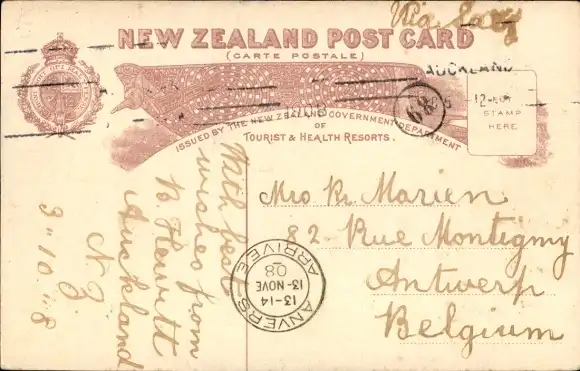 Via Suez
NEW ZEALAND POST CARD
(CARTE POSTALE)
AUCKLAND
ISSUED BY THE NEW ZEALAND GOVERNMENT DEPARTMENT
OF
TOURIST & HEALTH RESORTS.
STAMP
HERE
With best
wishes from
Hewitt
Auckland
N.Z.
3"10"8
Mrs Marien
82 Rue Montigny
Antwerp
Belgium
ANVERS
13-14
13-NOVE
08
ARRIVEE